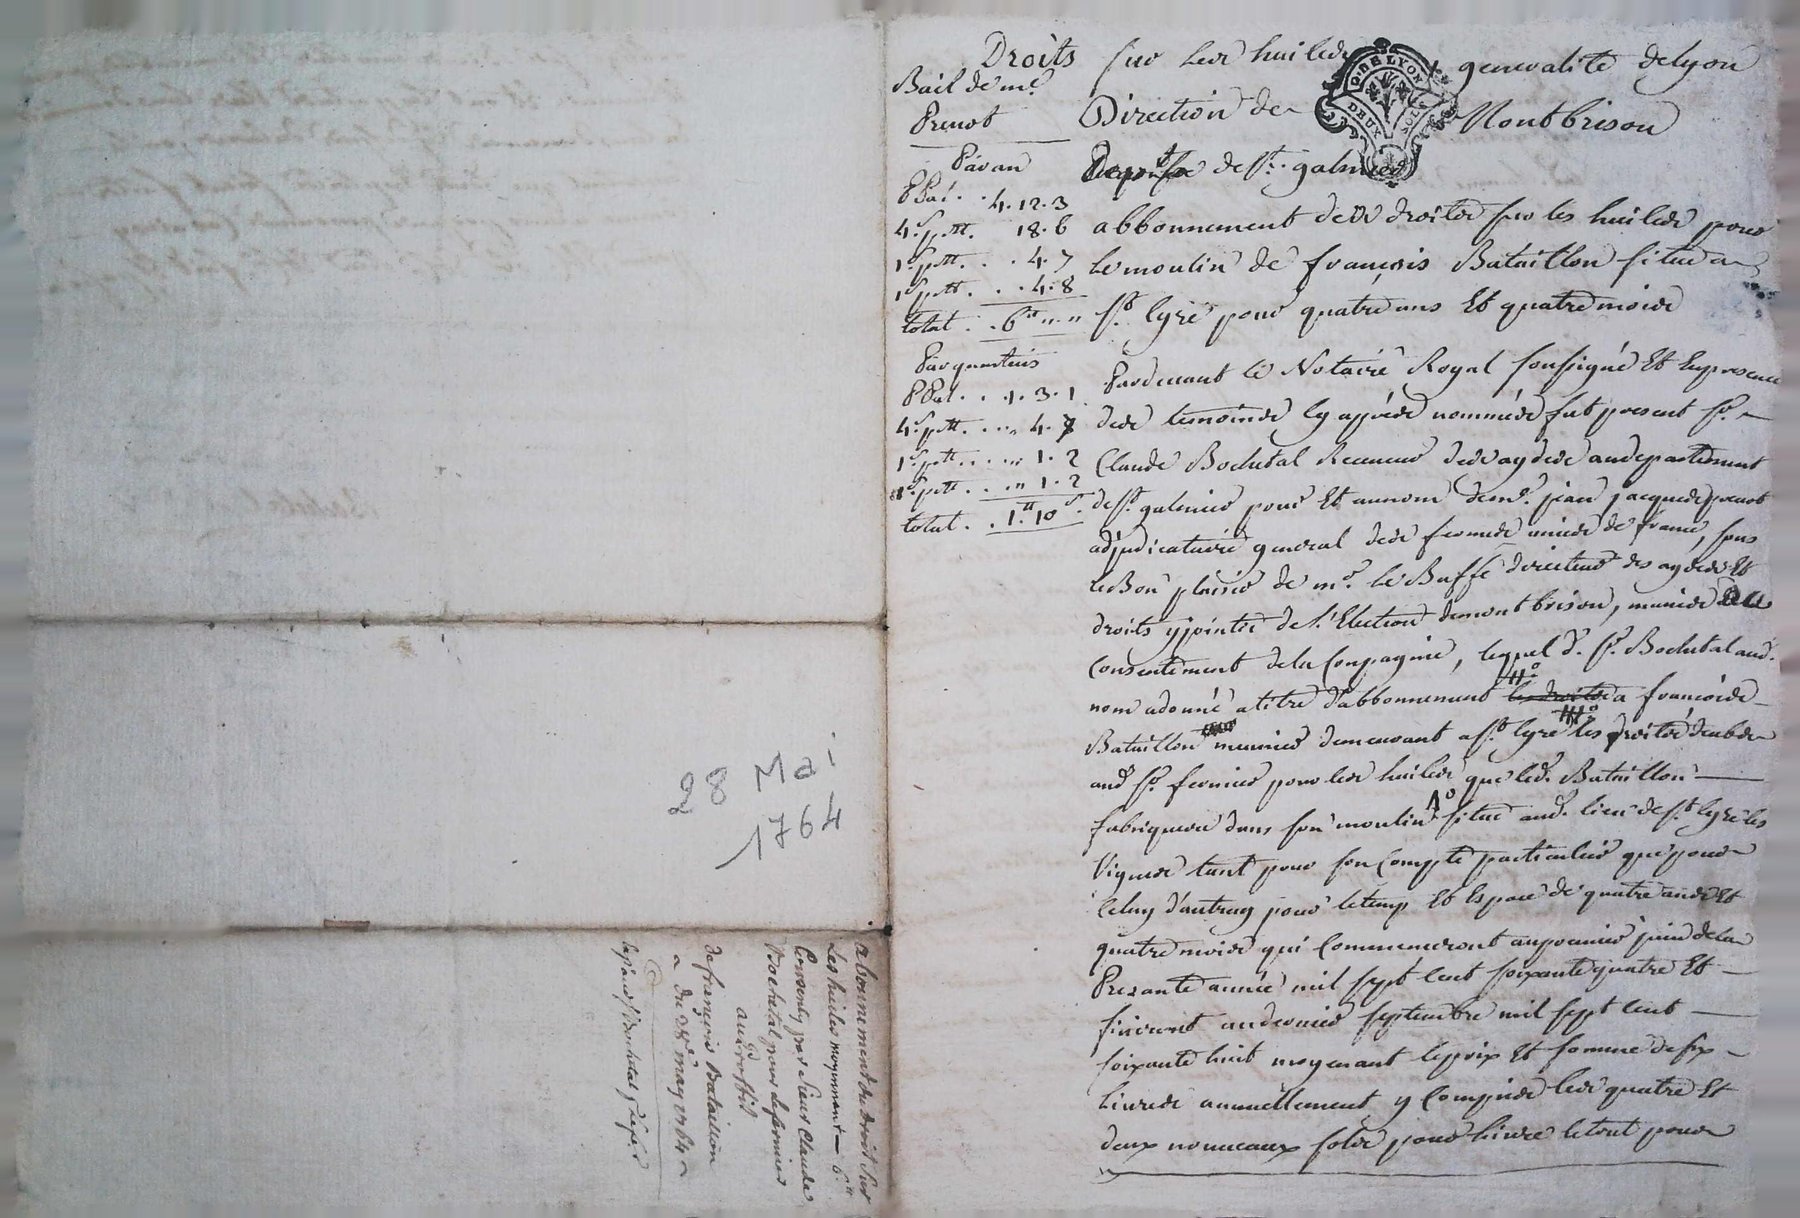 Droits sur les huiles generalité de lyon
Direction de Montbrison
de st. galmier
abbonnement des droits sur les huiles pour
le moulin de françois Bataillon situé a
st. Cyre pour quatre ans Et quatre mois
Pardevant le Notaire Royal soussigné Et En presence
des temoins Cy apprès nommés fut present sr.
Claude Bochetal Receveur des aydes au departement
de st. galmier pour Et au nom de me. jean jacques prevot
adjudicataire general des fermes unies de france, sous
le Bon plaisir de mr. le Buffe directeur des aydes Et
droits y joints de l'Election de montbrison, munis du
Consentement de la Compagnie, lequel d. sr. Bochetal aud.
nom a donné a titre d'abbonnement a francois
Bataillon meunier demeurant a st. Cyre les droits deubs
aud sr. fermier pour les huiles que led. Bataillon
fabriquera dans son moulin situé aud. lieu de st. Cyre les
Vignes tant pour son Compte particulier que pour
Celuy d'autruy pour le temp Et Espace de quatre ans Et
quatre mois qui Commenceront au premier juin de la
Presante année mil sept Cent soixante quatre Et
finiront au dernier septembre mil sept Cent
soixante huit moyenant le prix Et somme de six
Livres annuellement y Compris les quatre Et
deux nouveaux sols pour Livre le tout pour
Bail de me.
Prevot
Par an
Ppal. . 4. 12. 3
4 s. p tt. 18. 6
1 s. p tt. . . 4. 7
1 s. p tt. . . 4. 8
total . . 6 tt " "
Par quartiers
Ppal . . 1. 3. 1
4 s. p tt. . . . " 4. 7
1 s. p tt. . . . " 1. 2
1 s. p tt. . . " 1. 2
total . . 1 tt 10 s.
28 Mai
1764
abonnement du droit sur
Les huiles moyennant 6 tt
Consenty par sieur Claude
Bochetal pour le fermier
au profit
de françois Bataillon
du 28e may 1764